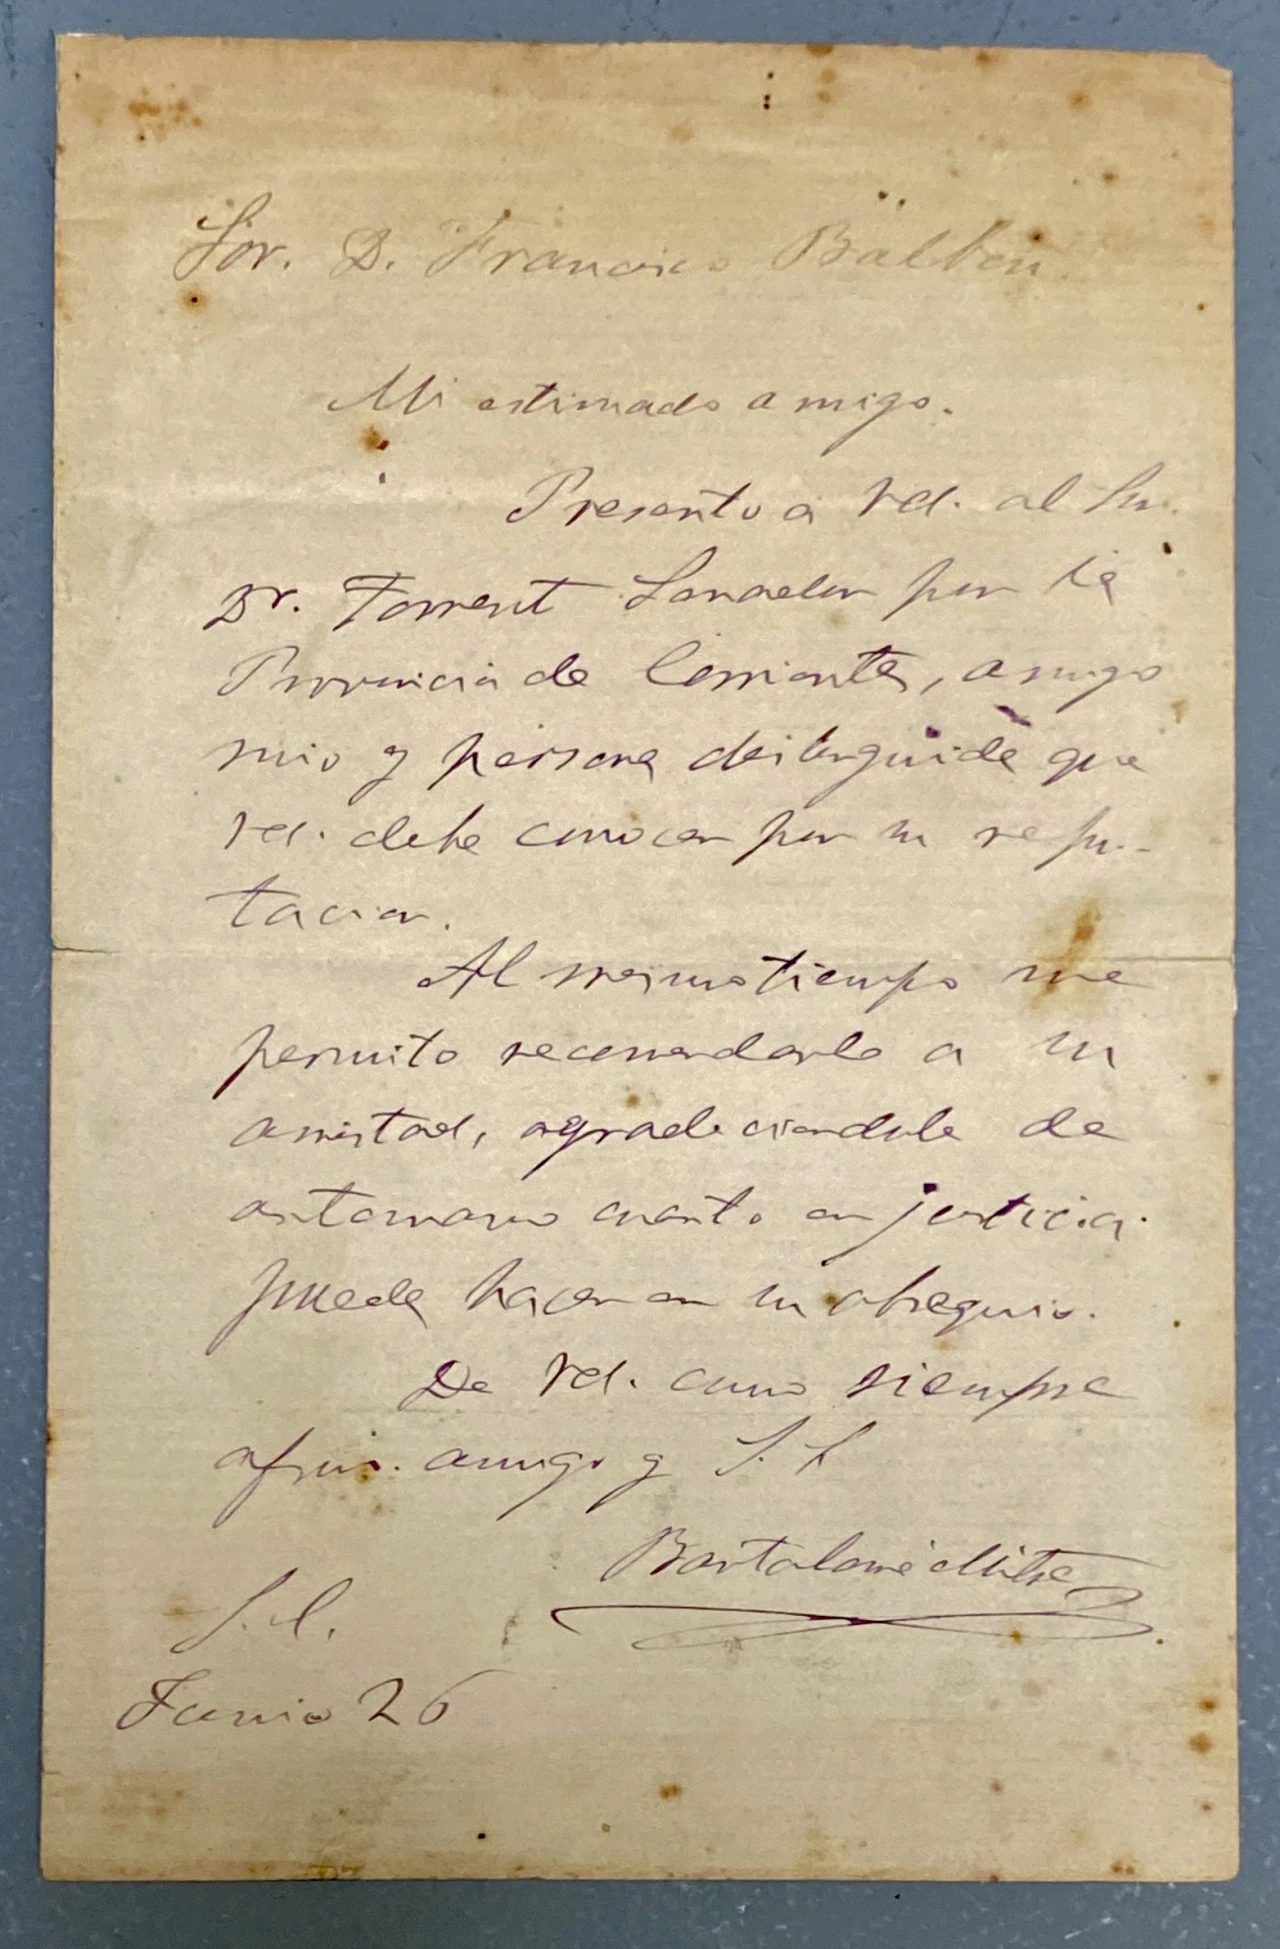 Sor. D. Francisco Balbin
Mi estimado amigo.
Presento a Vd. al Sr.
Dr. Torrent Senador por la
Provincia de Corrientes, amigo
mio y persona distinguida que
Vd. debe conocer por su repu-
tacion.
Al mismo tiempo me
permito recomendarlo a su
amistad, agradeciendole de
antemano cuanto en justicia
pueda hacer en su obsequio.
De Vd. como siempre
afmo. amigo y S. S
Bartolomé Mitre
S. C.
Junio 26